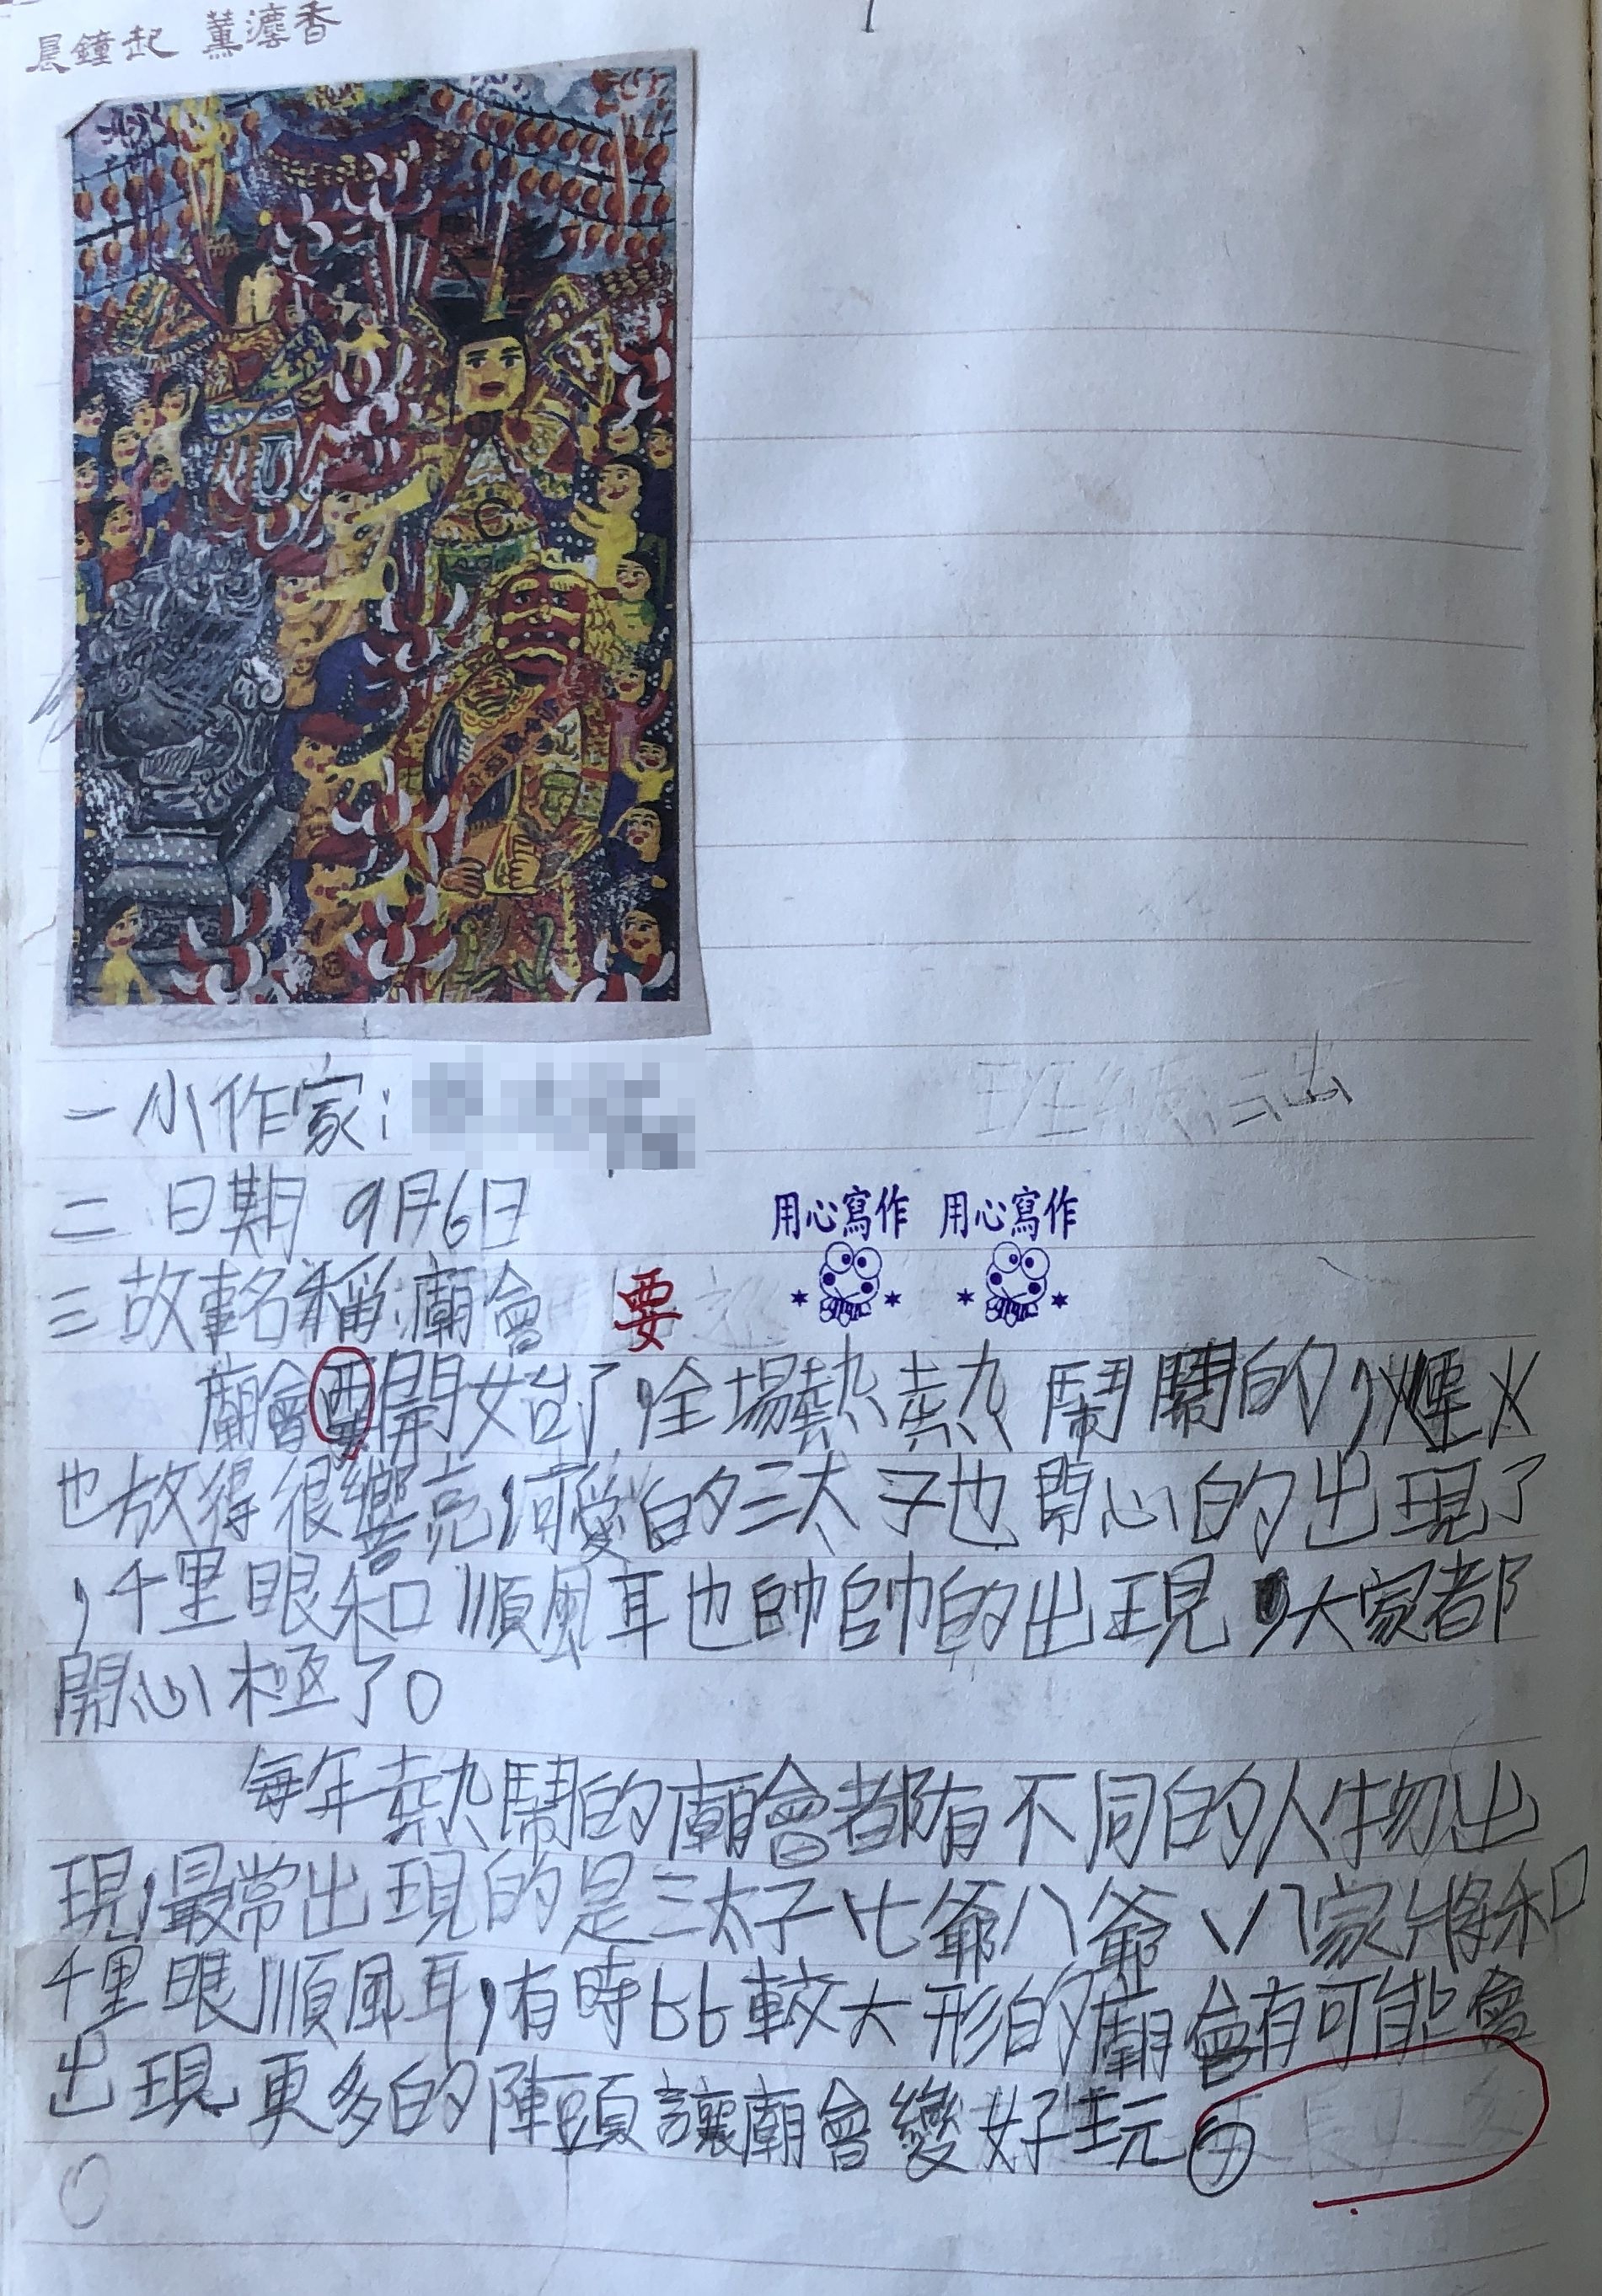 晨鐘起 薰瀀香
一小作家:
二 日期 9月6日
用心寫作 用心寫作
三故事名稱:廟會 要
廟會要開始了,全場熱熱鬧鬧的,煙火
也放得很響亮,可愛的三太子也開心的出現了
,千里眼和順風耳也帥帥的出現,大家都
開心極了。
每年熱鬧的廟會都有不同的人物出
現,最常出現的是三太子、七爺八爺、八家將和
千里眼順風耳,有時比較大形的廟會有可能會
出現更多的陣頭讓廟會變好玩。